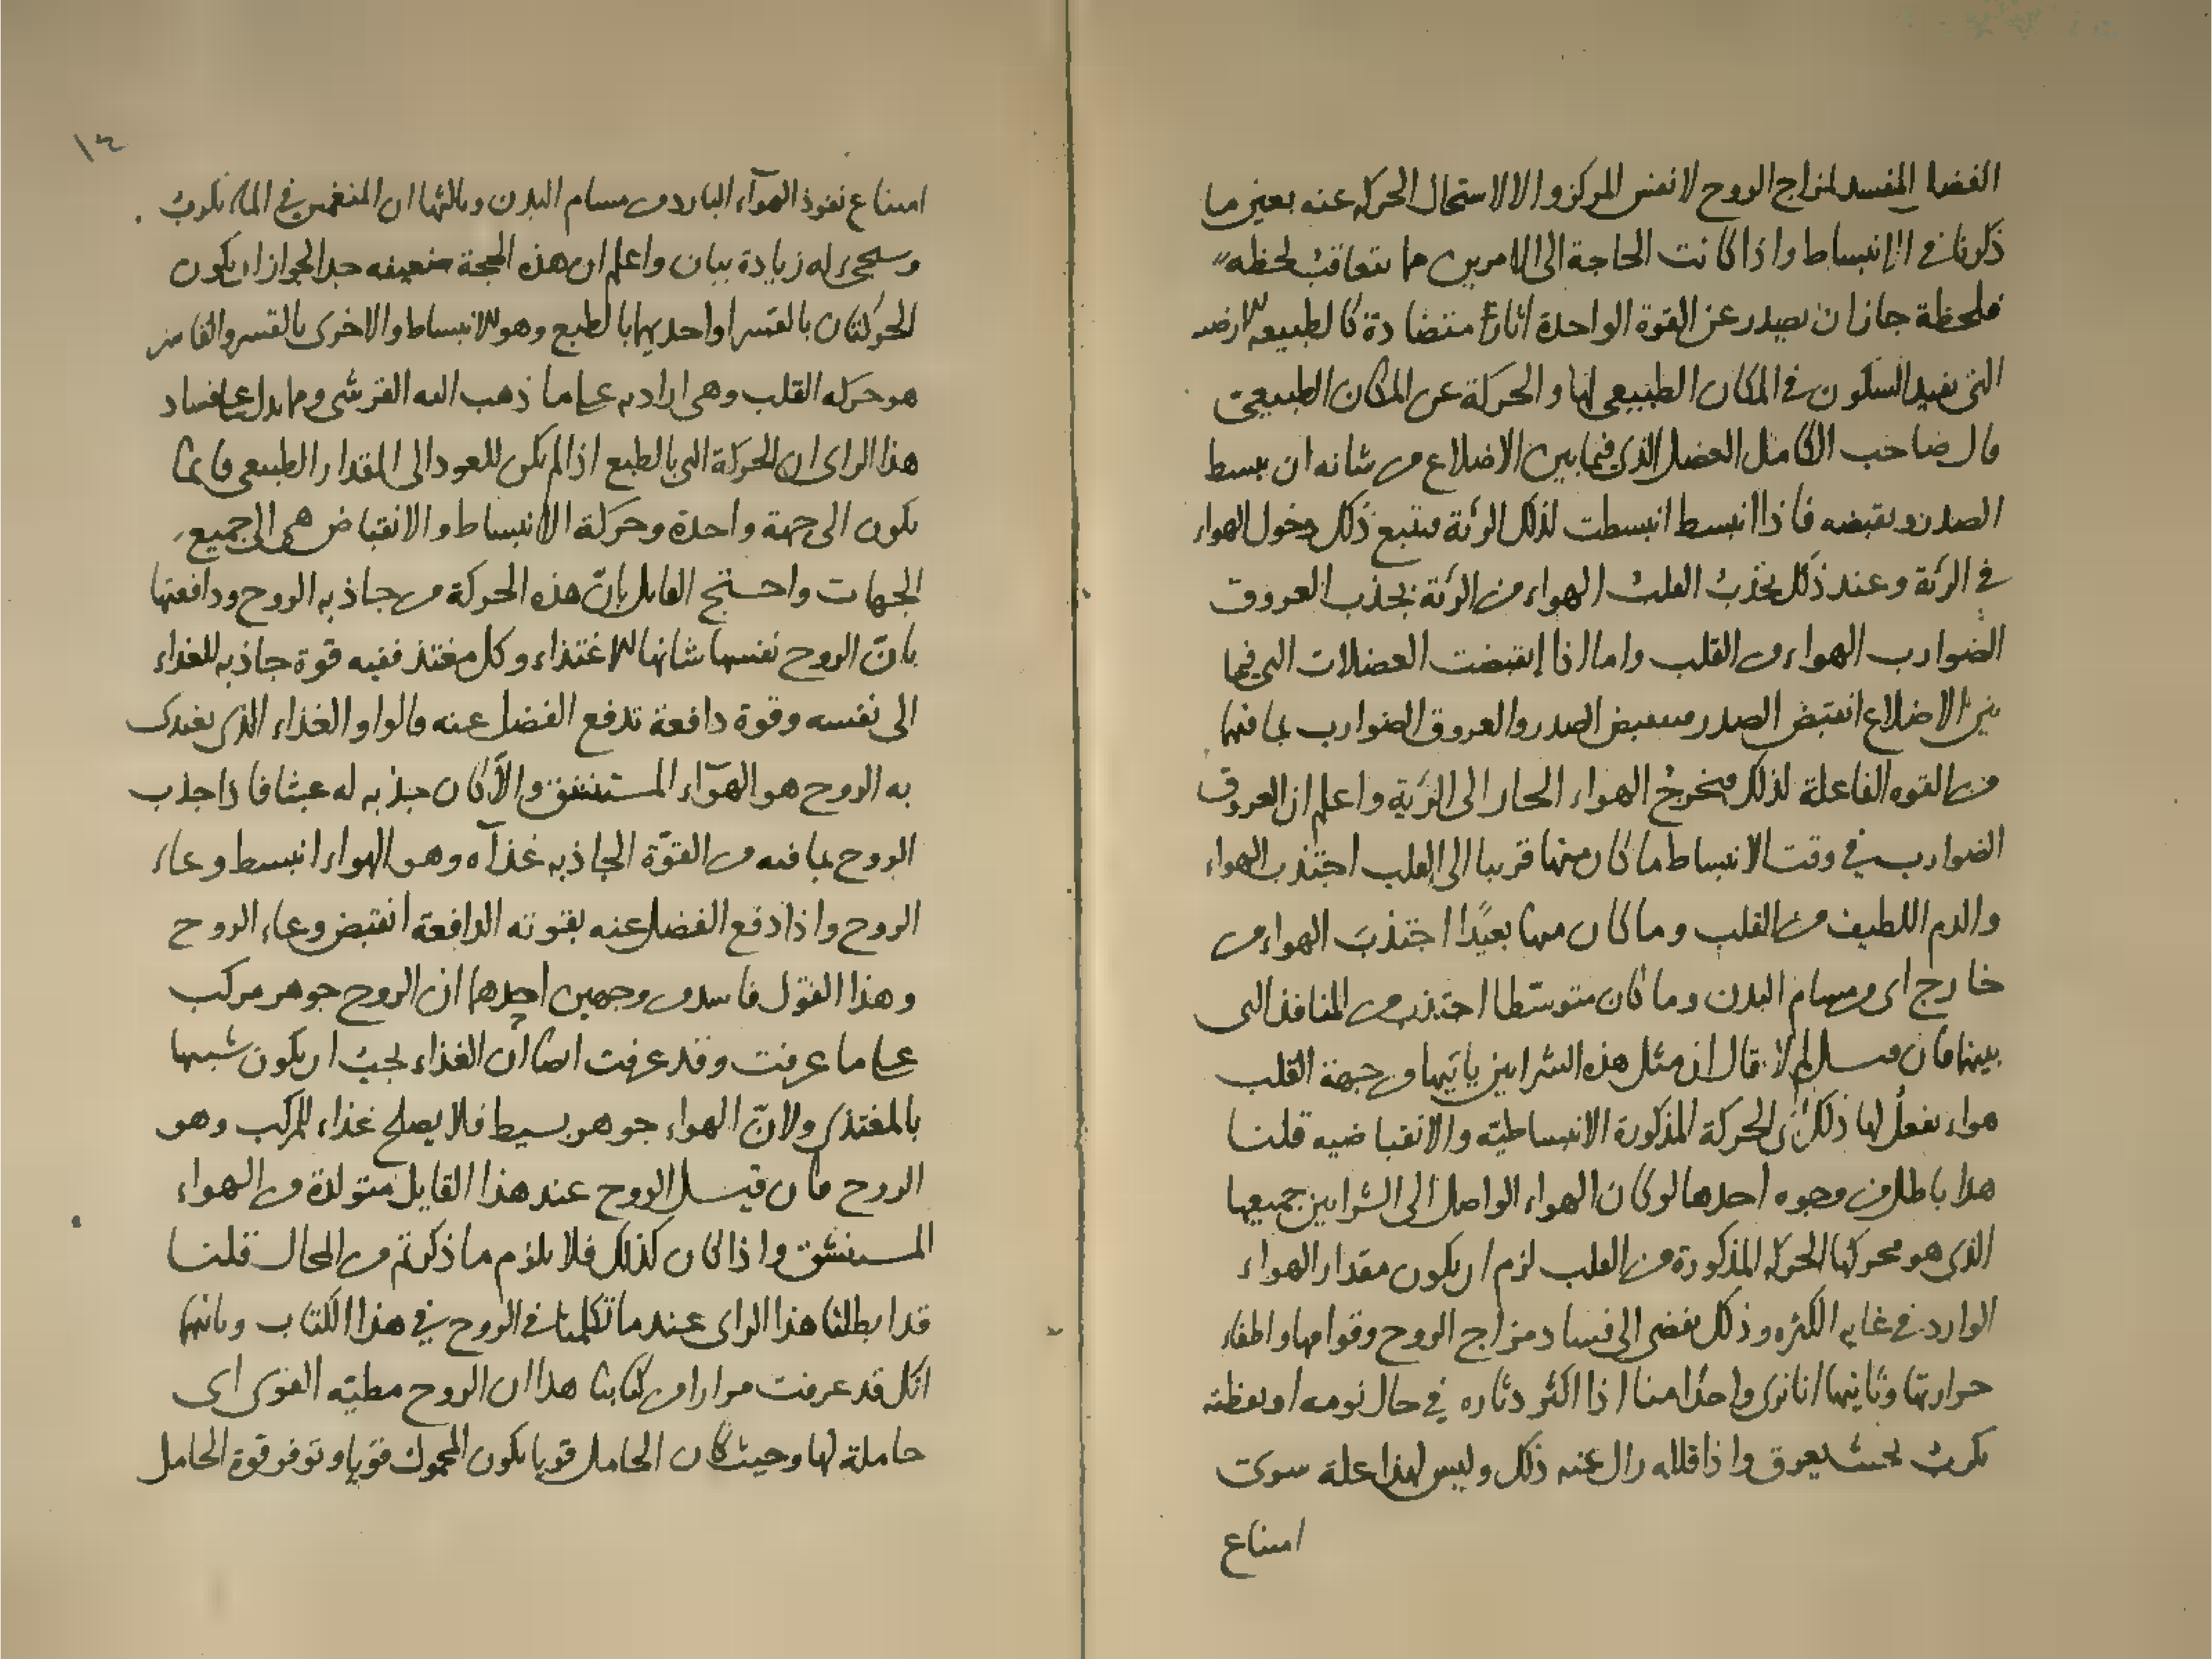 الفضل المفسد لمزاج الروح لا نفس المركز والا لاستحال الحركة عنه بعين ما
ذكرنا في الانبساط واذا كانت الحاجة الى الامرين مما يتعاقب لحظه
فلحظة جاز ان يصدر عن القوة الواحدة اثارا متضادة كالطبيعه الارضيه
التي تفيد السكون في المكان الطبيعي لها والحركة عن المكان الطبيعي
قال صاحب الكامل العضل الذي فيما بين الاضلاع من شانه ان يبسط
الصدر ويقبضه فاذا انبسط انبسطت لذلك الرئة فيتبع ذلك دخول الهواء
في الرئة وعند ذلك يجذب القلب الهواء من الرئة يجذب العروق
الضوارب الهواء من القلب واما اذا انقبضت العضلات التي فيما
بين الاضلاع انقبض الصدر فينقبض الصدر والعروق الضوارب بما فيها
من القوه الفاعلة لذلك فيخرج الهواء الحار الى الرئة واعلم ان العروق
الضوارب في وقت الانبساط ما كان منها قريبا الى القلب اجتذب الهواء
والدم اللطيف من القلب وما كان منها بعيدا اجتذب الهواء من
خارج اي من مسام البدن وما كان متوسطا اجتذب من المنافذ التي
بينها فان قيل لم لا يقال ان مثل هذه الشرايين ياتيها من جهة القلب
هواء يفعل لها ذلك اي الحركة المذكورة الانبساطيه والانقباضيه قلنا
هذا باطل من وجوه احدها لو كان الهواء الواصل الى الشرايين جميعها
الذي هو محركها الحركه المذكورة من القلب لزم ان يكون مقدار الهواء
الوارد في غايه الكثره وذلك يفضي الى فساد مزاج الروح وقوامها واطفاء
حرارتها وثانيها انا نرى واحدا منا اذا اكثر دثاره في حال نومه او يقظته
يكرب بحيث يعرق واذا قلله زال عنه ذلك وليس لهذا علة سوى
امتناع
١٤
امتناع نفوذ الهوآء البارد من مسام البدن وثالثها ان المنغمس في الماء يكرب
وسيجيء له زيادة بيان واعلم ان هذه الحجة ضعيفه جدا لجواز ان يكون
الحركتان بالقسر او احديهما بالطبع وهو الانبساط والاخرى بالقسر والقاسر
هو حركه القلب وهي اراديه على ما ذهب اليه القرشي ومما يدل على فساد
هذا الراي ان الحركة التي بالطبع اذا لم يكن للعود الى المقدار الطبيعي فانما
يكون الى جهة واحدة وحركة الانبساط والانقباض هي الى جميع
الجهات واحتج القايل بان هذه الحركة من جاذبه الروح ودافعتها
بان الروح نفسها شانها الاغتذاء وكل مغتذ ففيه قوة جاذبه للغذاء
الى نفسه وقوة دافعة تدفع الفضل عنه قالوا والغذاء الذي يغتذي
به الروح هو الهوآء المستنشق والا كان جذبه له عبثا فاذا جذب
الروح بما فيه من القوة الجاذبه غذآه وهو الهواء انبسط وعاء
الروح واذا دفع الفضل عنه بقوته الدافعة انقبض وعاء الروح
وهذا القول فاسد من وجهين احدهما ان الروح جوهر مركب
على ما عرفت وقد عرفت ايضا ان الغذاء يجب ان يكون شبيها
بالمغتذي ولان الهواء جوهر بسيط فلا يصلح غذاء للمركب وهو
الروح فان قيل الروح عند هذا القايل متولدة من الهواء
المستنشق واذا كان كذلك فلا يلزم ما ذكرتم من المحال قلنا
قد ابطلنا هذا الراي عند ما تكلمنا في الروح في هذا الكتاب وثانيها
انك قد عرفت مرارا من كتابنا هذا ان الروح مطيه القوى اي
حاملة لها وحيث كان الحامل قويا يكون المحمول قويا وتوفر قوة الحامل